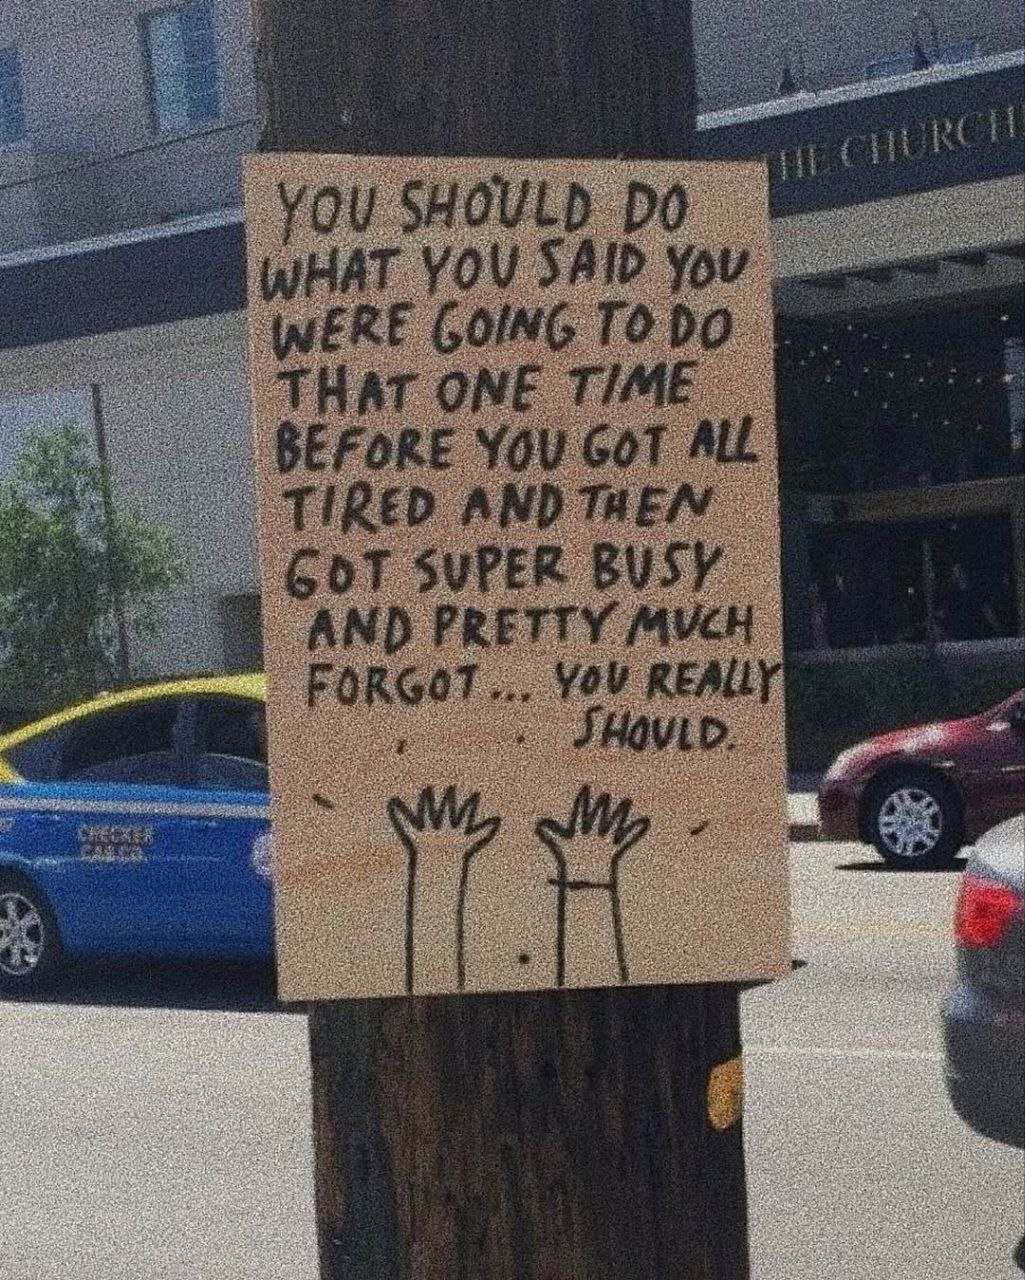 THE CHURCH
YOU SHOULD DO
WHAT YOU SAID YOU
WERE GOING TO DO
THAT ONE TIME
BEFORE YOU GOT ALL
TIRED AND THEN
GOT SUPER BUSY
AND PRETTY MUCH
FORGOT... YOU REALLY
SHOULD.
CHECKER
CAB CO.